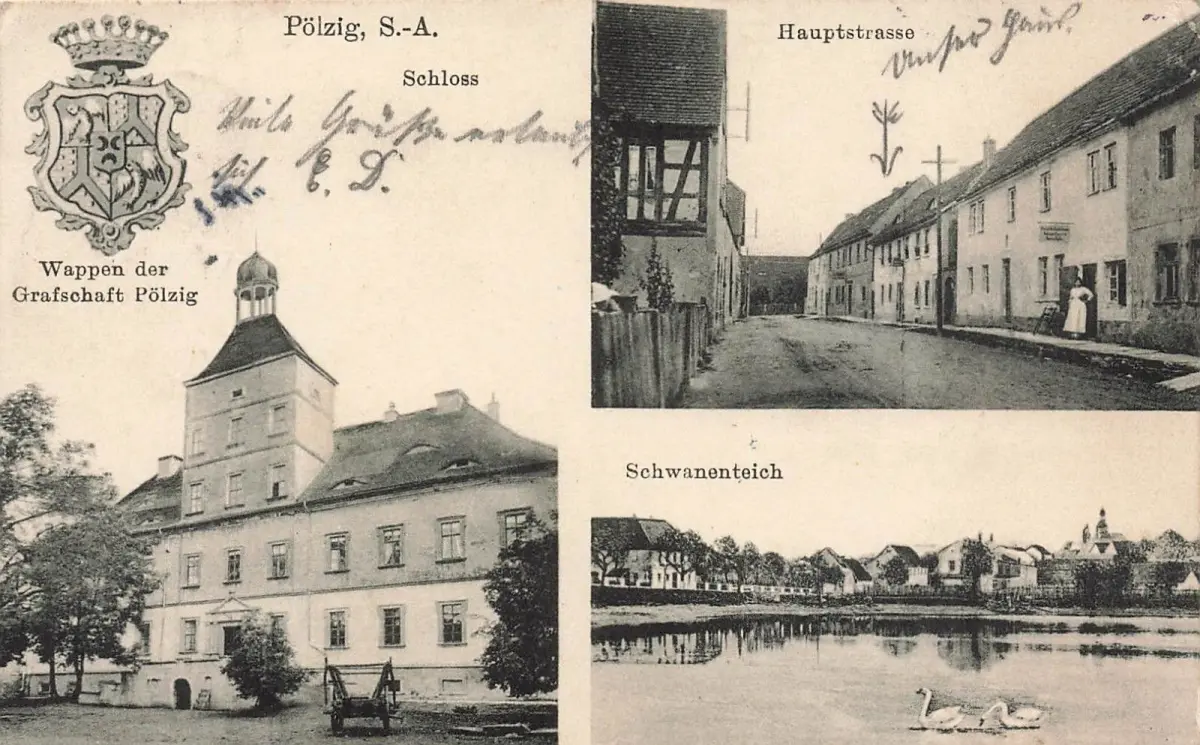 Pölzig, S.-A.
Schloss
Viele Grüße erlaubt
sich E. D.
Wappen der
Grafschaft Pölzig
Hauptstrasse
Unser Haus.
Schwanenteich